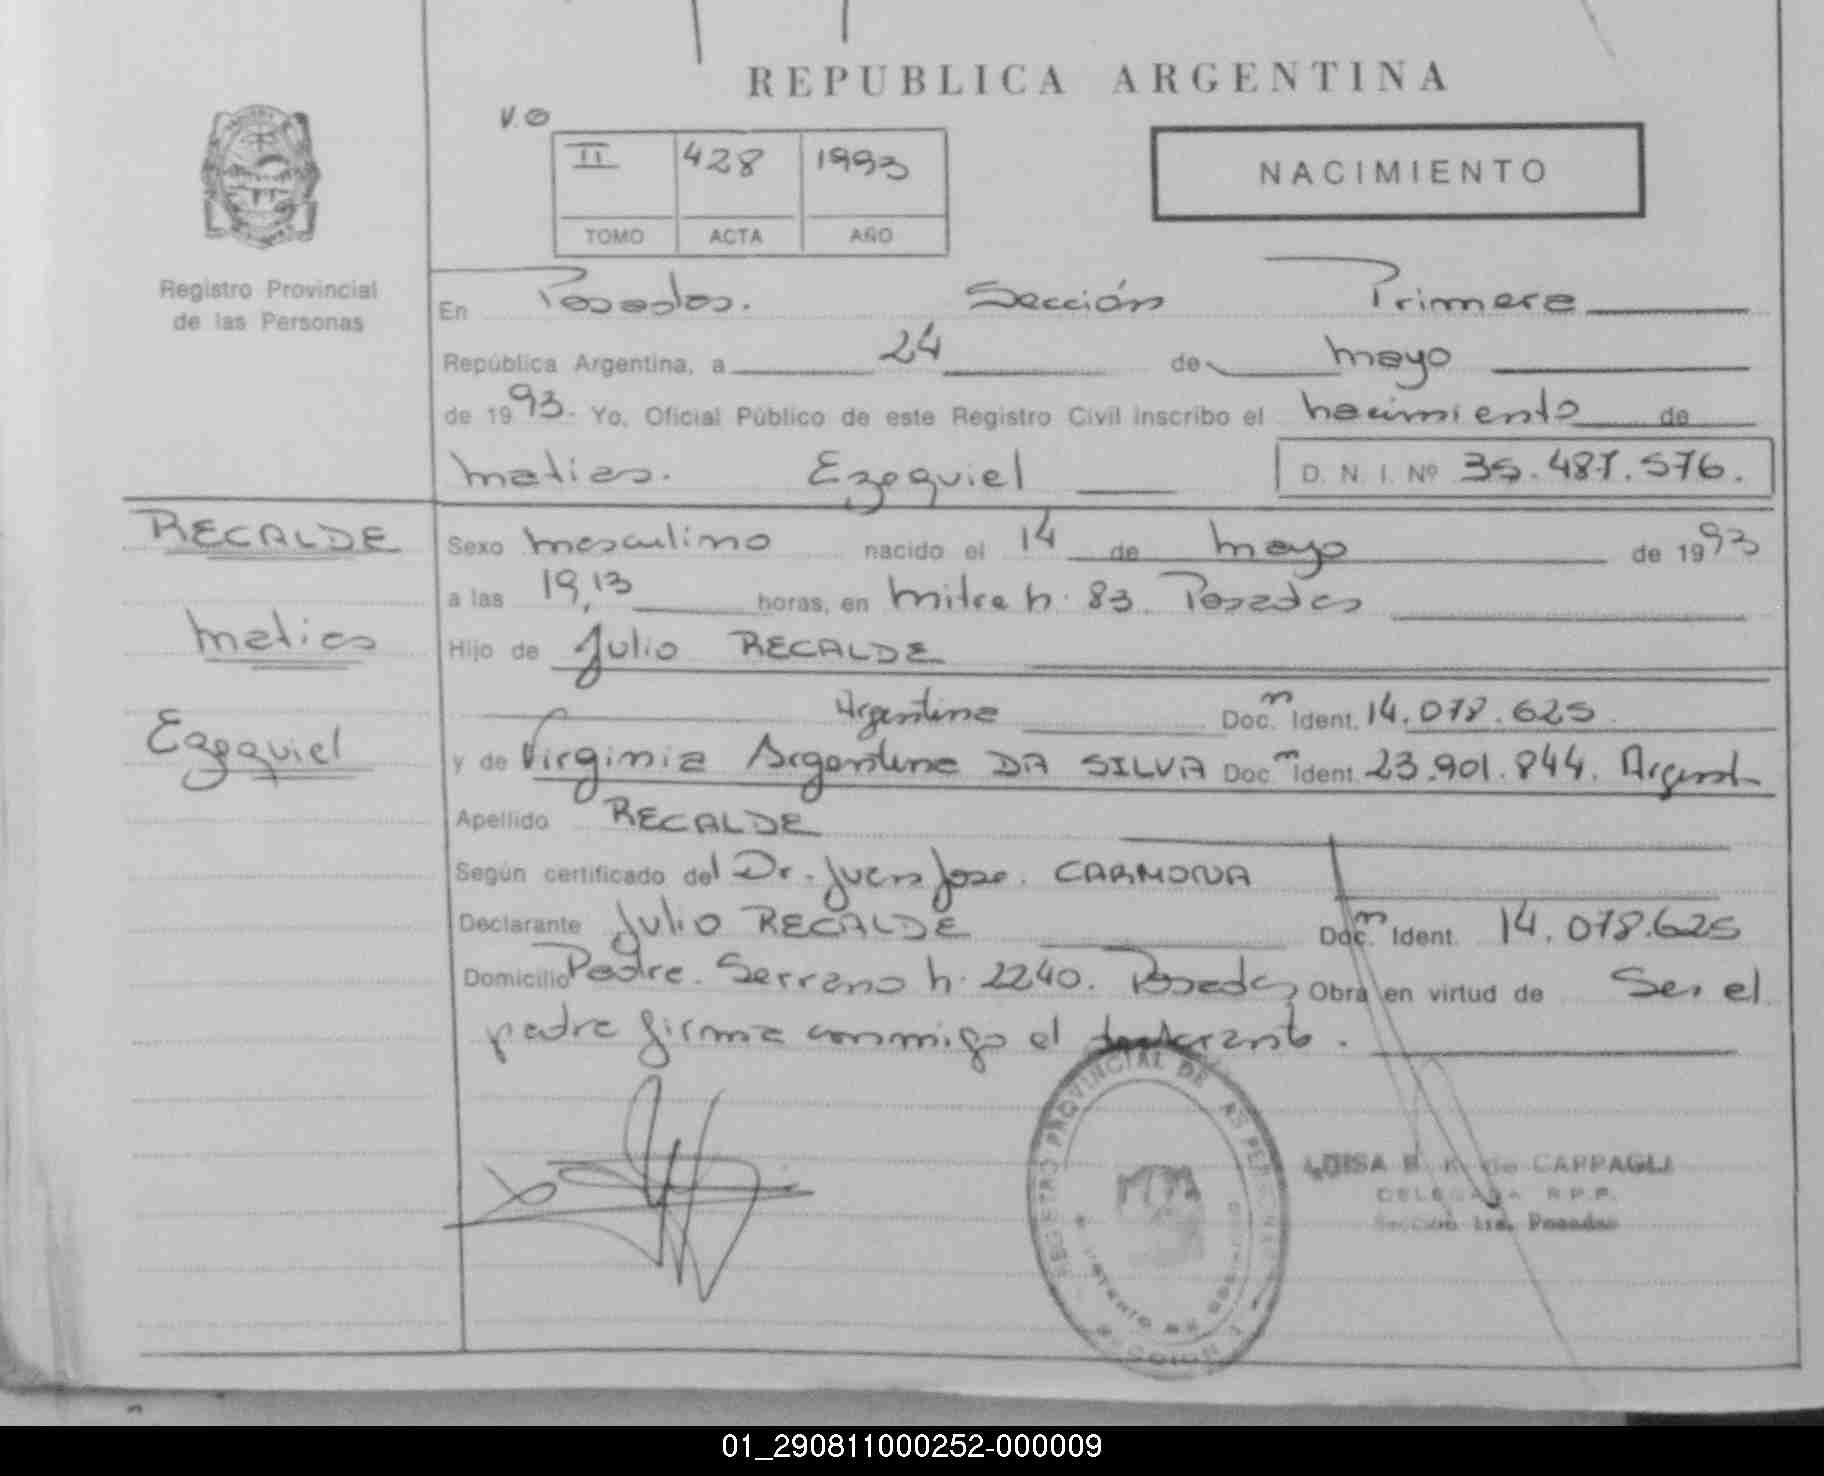 REPUBLICA ARGENTINA
V.O
II 428 1993
TOMO ACTA AÑO
NACIMIENTO
Registro Provincial
de las Personas
En Posadas. Sección Primera
República Argentina, a 24 de mayo
de 1993.- Yo, Oficial Público de este Registro Civil inscribo el nacimiento de
Matias. Ezequiel D. N. I. Nº 35.487.576.
RECALDE
Matias
Ezequiel
Sexo masculino nacido el 14 de mayo de 1993
a las 19,13 horas, en Mitre n. 83. Posadas
Hijo de Julio RECALDE
Argentina Doc. n Ident. 14.078.625
y de Virginia Argentina DA SILVA Doc. n Ident. 23.901.844. Argent
Apellido RECALDE
Según certificado del Dr. Juan Jose. CARMONA
Declarante Julio RECALDE Doc. n Ident. 14.078.625
Domicilio Padre. Serrano n. 2240. Posadas Obra en virtud de Ser el
padre firma conmigo el declarante.
REGISTRO PROVINCIAL DE LAS PERSONAS
SECCION 1
LUISA CAPPAGLI
DELEGADA R.P.P.
Sección 1ra. Posadas
01_290811000252-000009